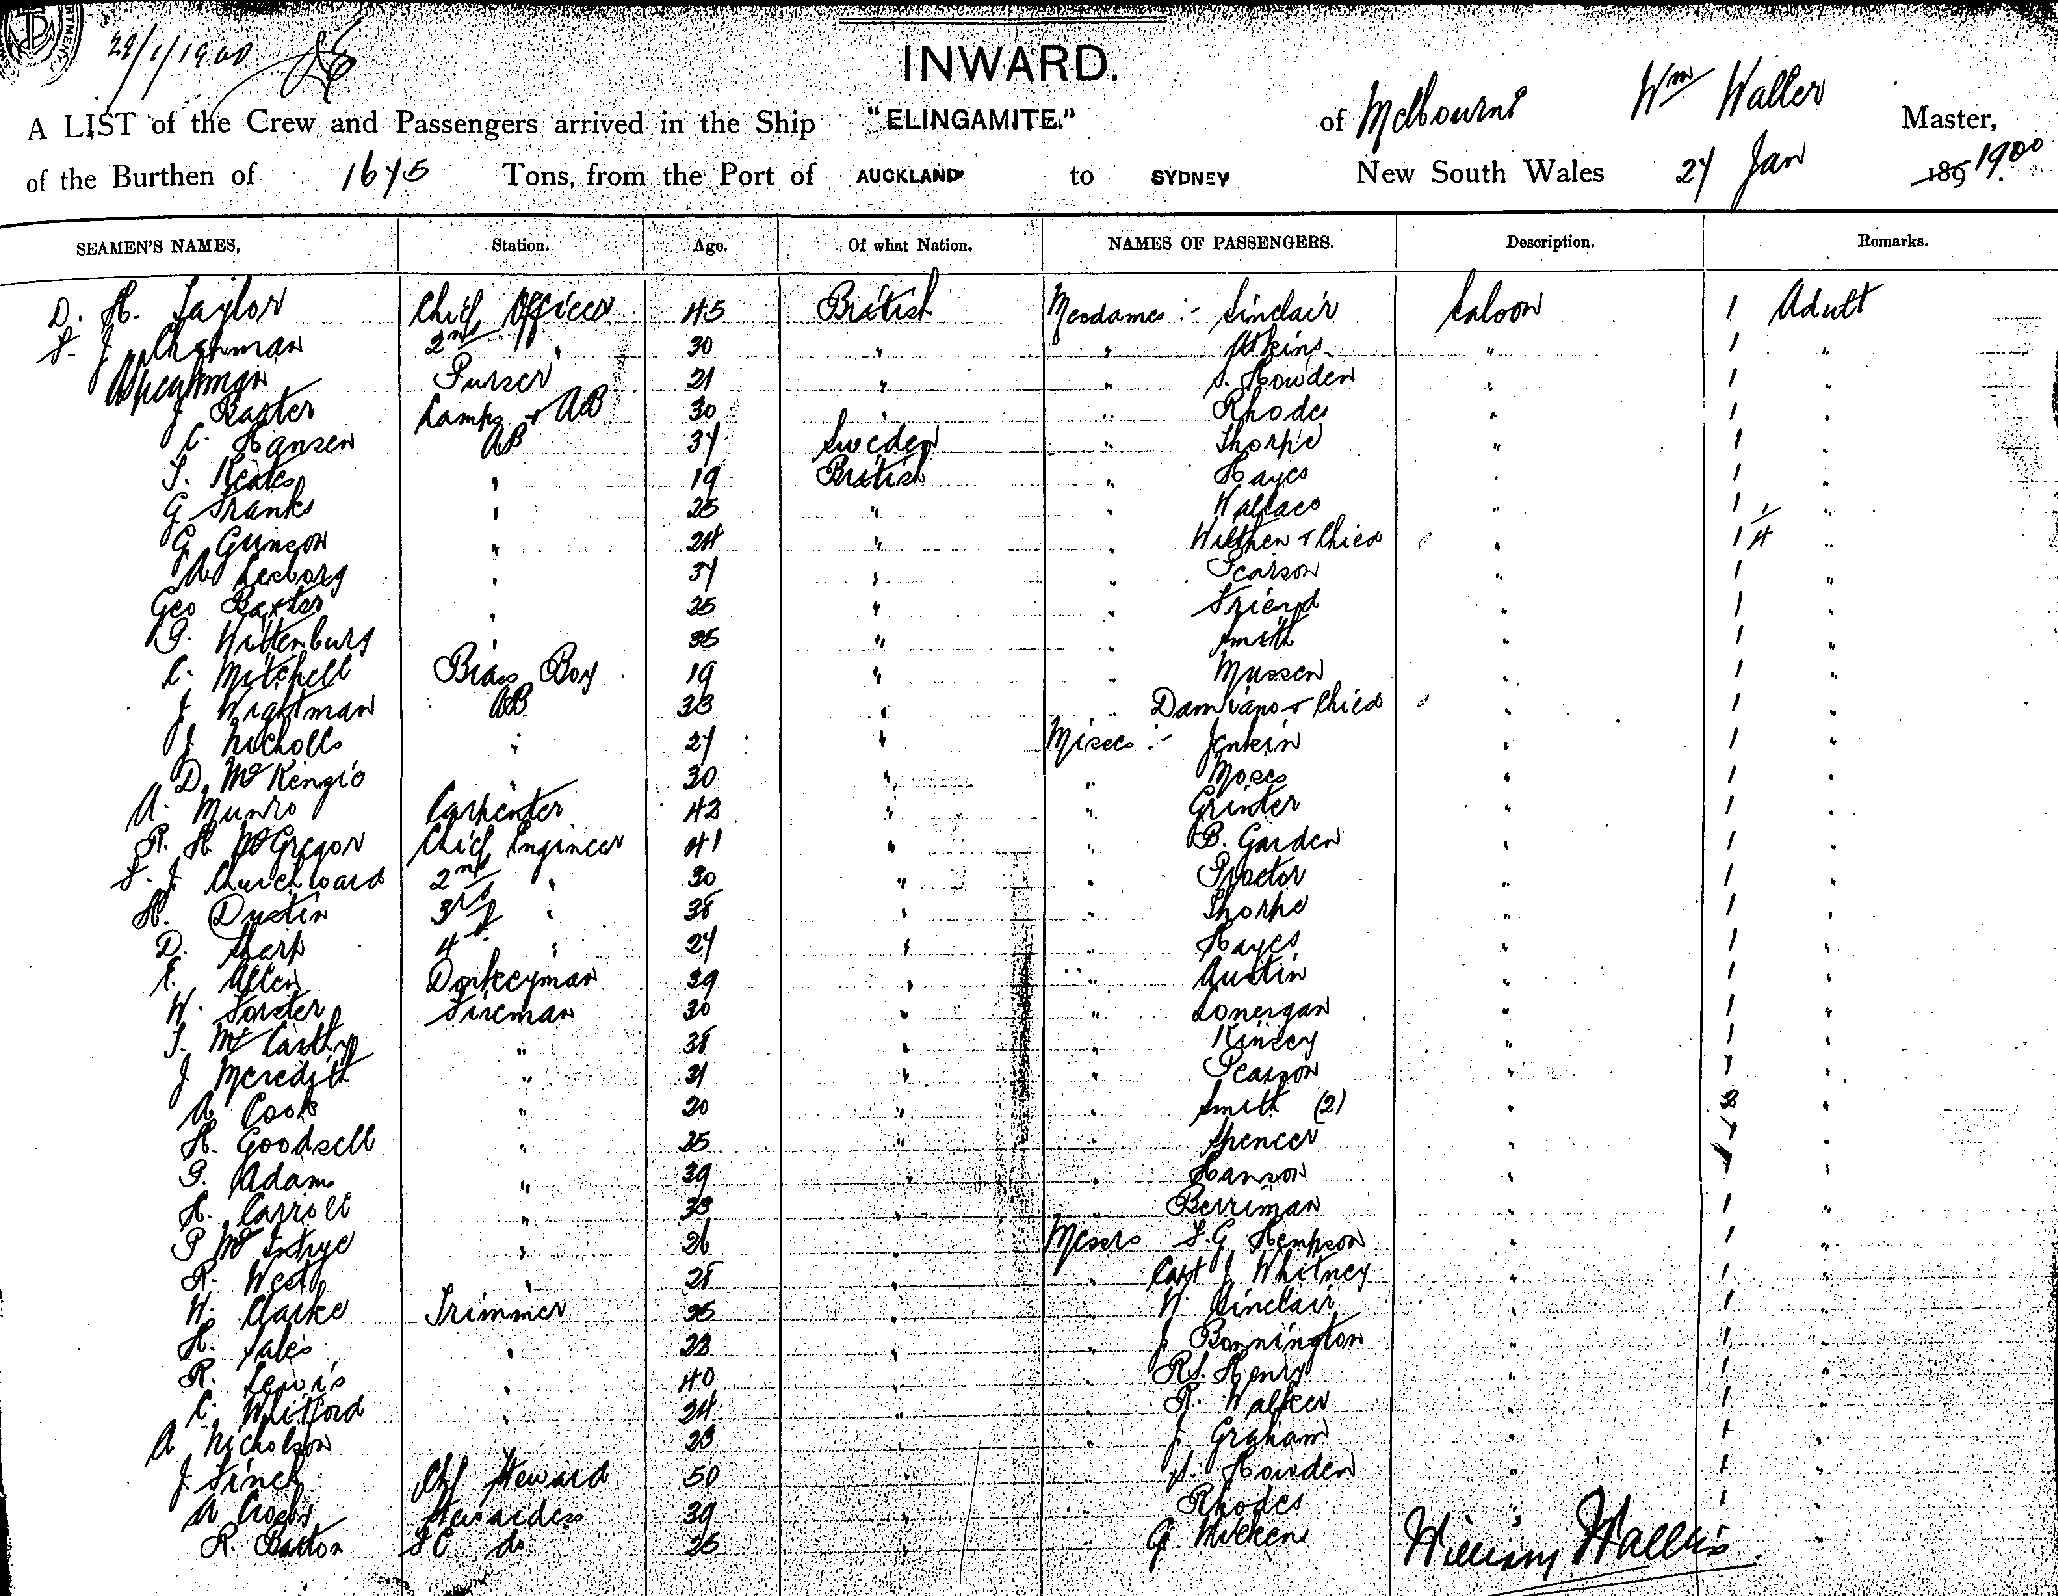 29/1/1900
INWARD.
A LIST of the Crew and Passengers arrived in the Ship "ELINGAMITE." of Melbourne Wm Waller Master,
of the Burthen of 1675 Tons, from the Port of AUCKLAND to SYDNEY New South Wales 27 Jan 189 1900
SEAMEN'S NAMES, Station. Age. Of what Nation. NAMES OF PASSENGERS. Description. Remarks.
D. H. Taylor Chief Officer 45 British Mesdames :- Sinclair Saloon 1 Adult
2nd " 30 " " Atkins " 1 "
Purser 21 " " S. Howden " 1 "
J Baxter Lamps & AB 30 " " Rhodes " 1 "
C. Hansen AB 37 Sweden " Thorpe " 1 "
T. Keates " 19 British " Hayes " 1 "
G Franks " 25 " " Wallace " 1 "
G. Grinson " 24 " " & Child " 1 1/4 "
" 37 " " Pearson " 1 "
Geo Baxter " 25 " " Friend " 1 "
G. Wittenburg " 35 " " Smith " 1 "
C. Mitchell Brass Boy 19 " " Mussen " 1 "
J Wightman AB 33 " " Damiano & Child " 1 "
J Nicholls " 27 " Misses :- Jenkin " 1 "
D. McKenzie " 30 " " Moses " 1 "
A. Munro Carpenter 42 " " Grinter " 1 "
R. H. McGregor Chief Engineer 41 " " B. Garden " 1 "
F. J. Churchward 2nd " 30 " " Proctor " 1 "
H. Dustin 3rd " 38 " " Thorpe " 1 "
D. Sharp 4th " 27 " " Hayes " 1 "
E. Allen Donkeyman 39 " " Austin " 1 "
W. Forster Fireman 30 " " Lonergan " 1 "
T. McCarthy " 38 " " Kinsey " 1 "
J Meredith " 21 " " Pearson " 1 "
A Cook " 20 " " Smith (2) " 2 "
H. Goodsell " 25 " " Spencer " 1 "
G. Adams " 39 " " Hanson " 1 "
H. Carroll " 33 " " Berriman " 1 "
P McIntrye " 26 " Messrs S.G Hempson " 1 "
R. West " 28 " " Capt J Whitney " 1 "
W. Clarke Trimmer 35 " " W Sinclair " 1 "
H. Sales " 22 " " J Bonnington " 1 "
R. Lewis " 40 " " R.S. Henry " 1 "
C. Whitford " 24 " " R. Walker " 1 "
A Nicholson " 23 " " J. Graham " 1 "
J Finch Chf Steward 50 " " S. Howden " 1 "
A Crosby Stewardess 39 " " Rhodes " 1 "
R. Batton do 25 " " G. " "